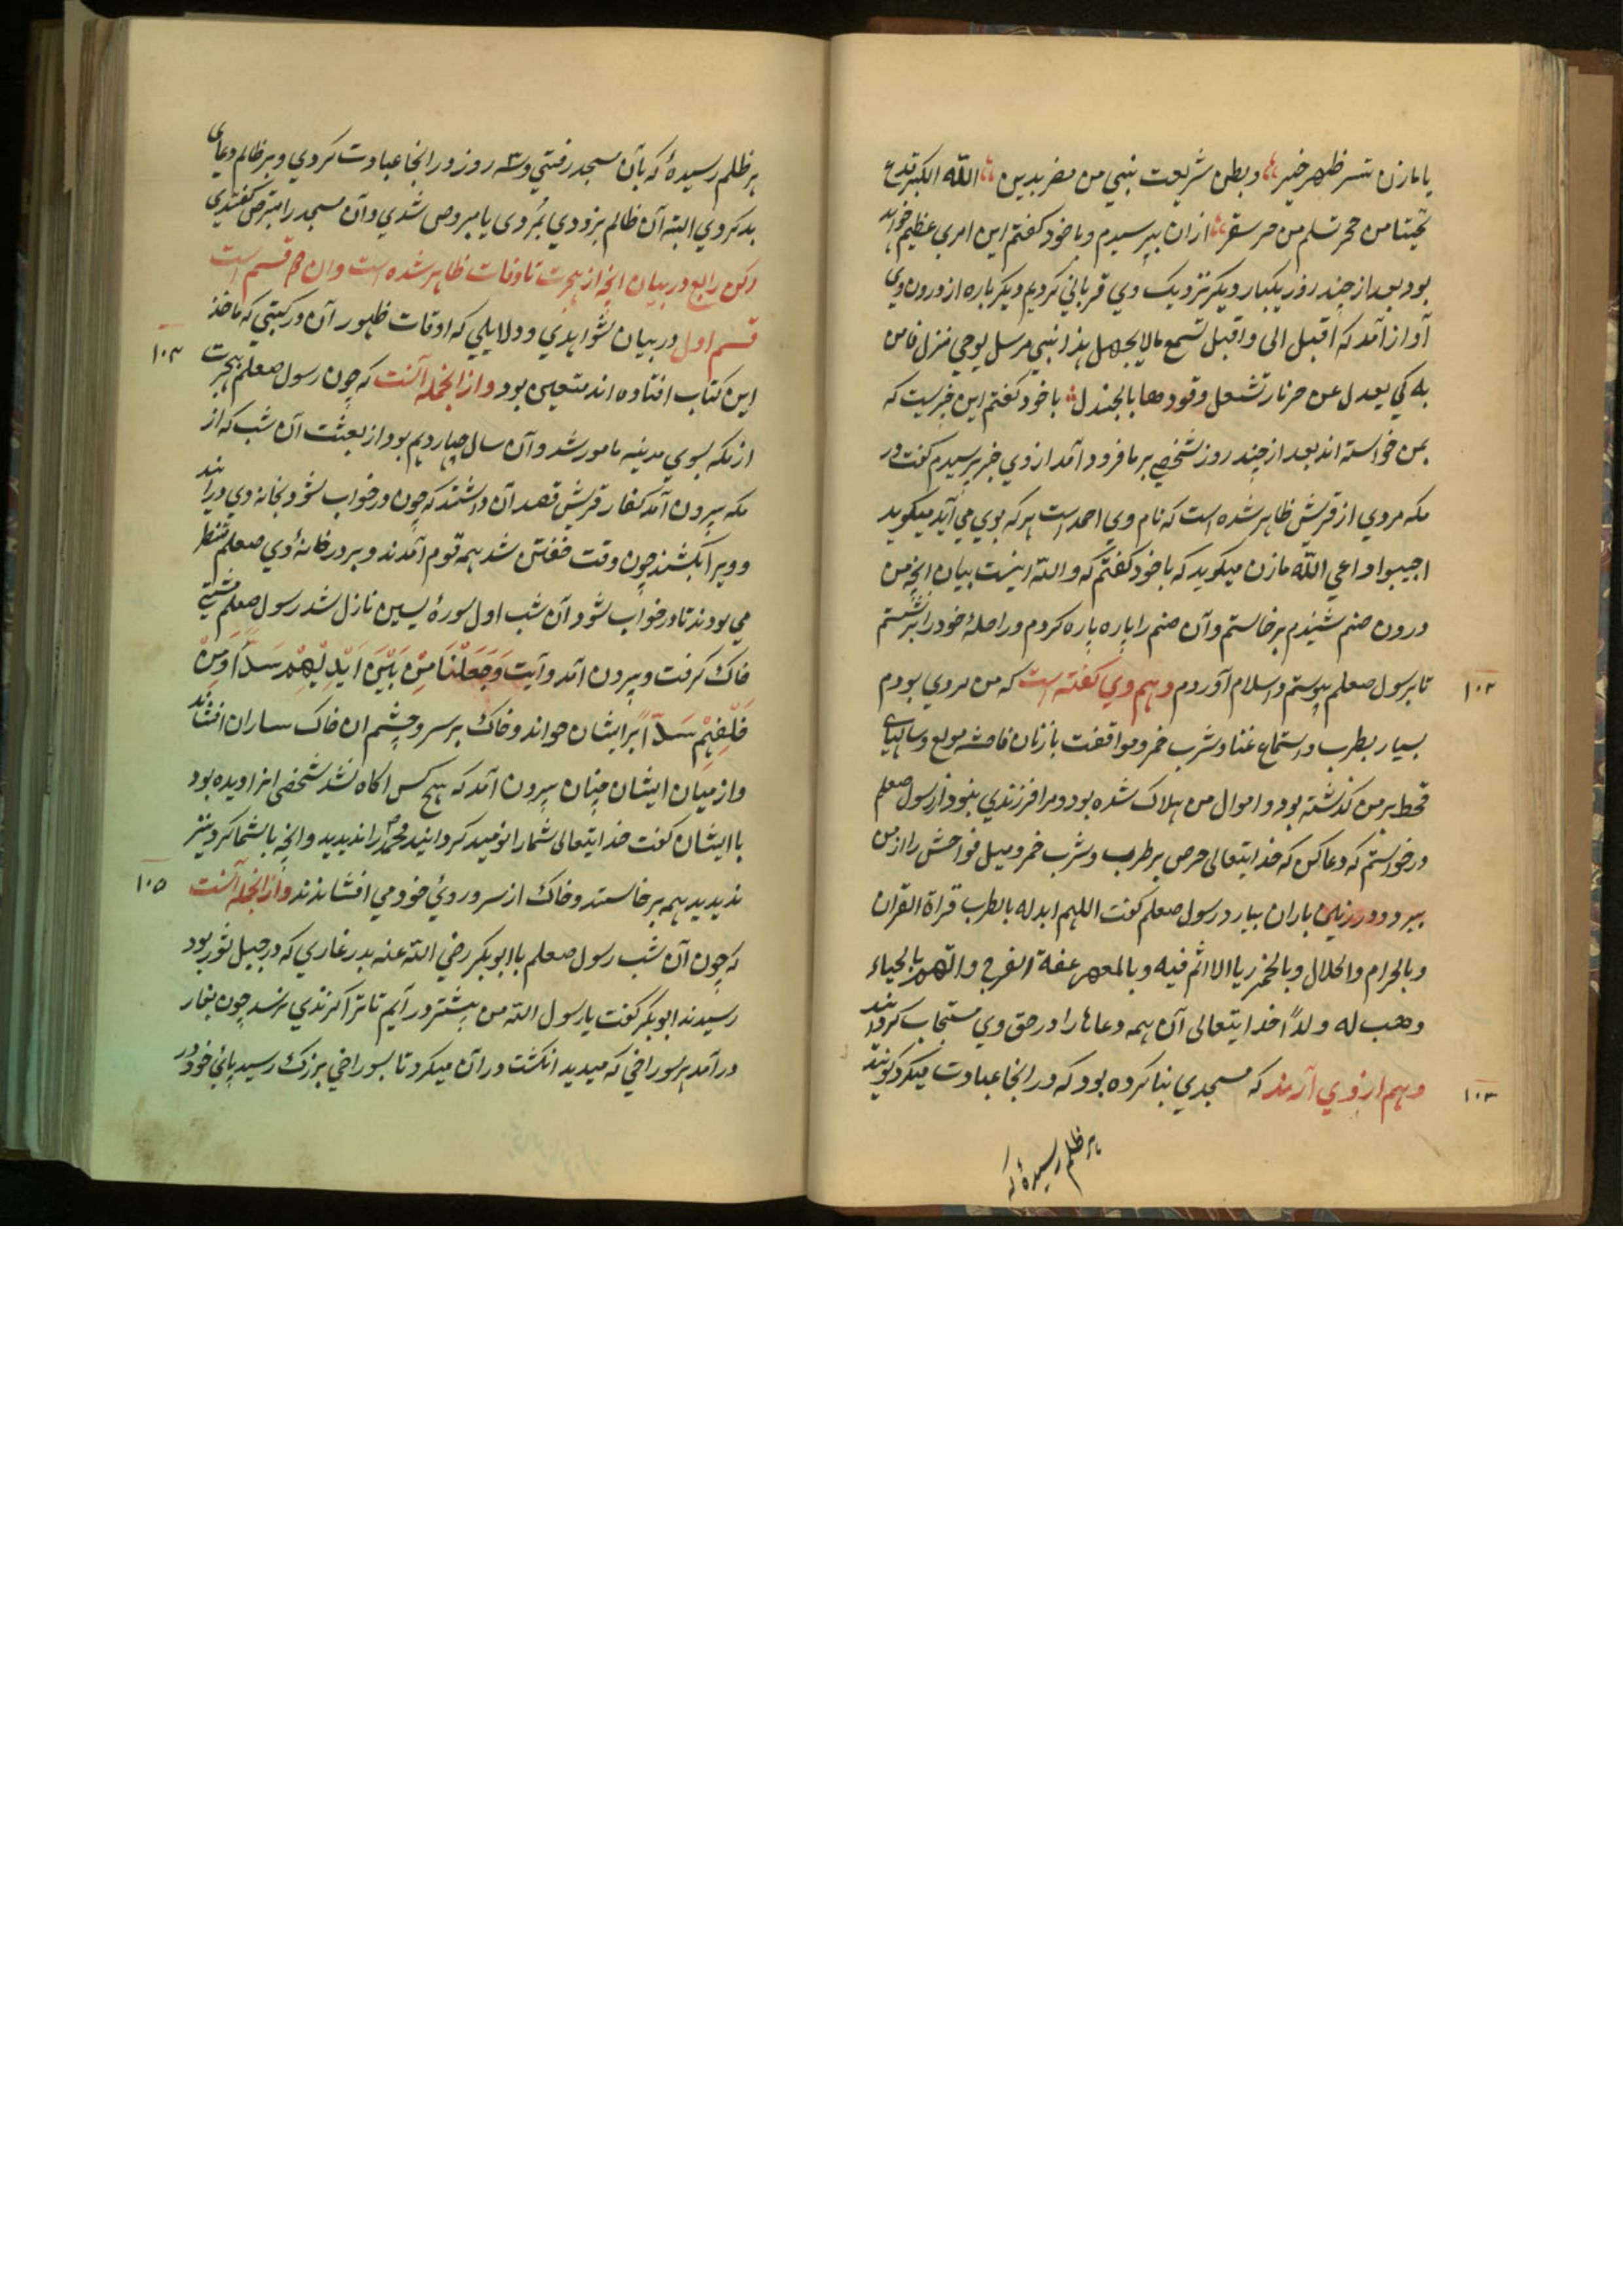 یا مازن تسر ظهر خیر وبطن شر بعث نبی من مضر بدین الله الکبر فدع
نحیتا من حجر تسلم من حر سقر ازان بپرسیدم وبا خود کفتم این امری عظیم خواهد
بود بعد از چند روز یکبار دیکر نزدیک وی قربانی کردیم دیکر باره از درون وی
آواز آمد که اقبل الی واقبل تسمع مالا یجهل هذا نبی مرسل بوحی منزل فامن
به کی یعدل عن حر نار تشعل وقودها بالجندل با خود کفتم این خیریست که
بمن خواسته اند بعد از چند روز شخصی بر ما فرود آمد از وی خبر پرسیدم کفت در
مکه مردی از قریش ظاهر شده است که نام وی احمد است هر که بوی می آید میکوید
اجیبوا داعی الله مازن میکوید که با خود کفتم که والله اینست بیان آنچه من
درون صنم شنیدم برخاستم وآن صنم را پاره پاره کردم وراحلهٔ خود را برنشستم
تا برسول صلعم پیوستم واسلام آوردم وهم وی کفته است که من مردی بودم
۱۰۲
بسیار بطرب واستماع غنا وشرب خمر وموافقت با زنان فاحشه مولع وسالهای
قحط بر من کذشته بود واموال من هلاک شده بود ومرا فرزندی نبود از رسول صلعم
درخواستم که دعا کن که خدایتعالی حرص بر طرب وشرب خمر ومیل فواحش را از من
ببرد ودر زمین باران ببارد رسول صلعم کفت اللهم ابدله بالطرب قراة القران
وبالحرام والحلال وبالخمر ریا لا اثم فیه وبالعهر عفة الفرج واتهم بالحیاء
وهب له ولدًا خدایتعالی آن همه دعاها را در حق وی مستجاب کرداند
وهم از وی آرند که مسجدی بنا کرده بود که در انجا عبادت میکرد کویند
۱۰۳
هر ظلم رسیدهٔ که
هر ظلم رسیدهٔ که بآن مسجد رفتی و۳ روز در انجا عبادت کردی وبر ظالم دعای
بد کردی البته آن ظالم بزودی بمُردی یا مبروص شدی وآن مسجد را مبترص کفتندی
رکن رابع در بیان آنچه از هجرت تا وفات ظاهر شده است وان قسم است
قسم اول در بیان شواهدی ودلایلی که اوقات ظهور آن در کتبی که ماخذ
این کتاب افتاده اند متعین بود واز انجمله آنست که چون رسول صلعم بهجرت
۱۰۴
از مکه بسوی مدینه مامور شد وآن سال چهاردهم بود از بعثت آن شب که از
مکه بیرون آمد کفار قریش قصد آن داشتند که چون در خواب شود بخانهٔ وی درآیند
وویرا بکشند چون وقت خفتن شد همه قوم آمدند وبر در خانهٔ وی صلعم منتظر
می بودند تا در خواب شود آن شب اول سورهٔ یسین نازل شد رسول صلعم مشتی
خاک کرفت وبیرون آمد وآیت وَجَعَلْنَا مِنْ بَیْنِ اَیْدِیْهِمْ سَدًّا وَمِنْ
خَلْفِهِمْ سَدًّا بر ایشان خواند وخاک بر سر وچشم ان خاک ساران افشاند
واز میان ایشان چنان بیرون آمد که هیچ کس آکاه نشد شخصی انرا دیده بود
با ایشان کفت خدایتعالی شمارا نومید کردانید محمد را ندیدید وآنچه با شما کرد نیز
ندیدید همه برخاستند وخاک از سر وروئ خود می افشاندند واز انجمله آنست
۱۰۵
که چون آن شب رسول صلعم با ابوبکر رضی الله عنه بدر غاری که در جبل ثور بود
رسیدند ابوبکر کفت یا رسول الله من پیشتر در آیم تا ترا کزندی نرسد چون بغار
درآمد هر سوراخی که میدید انکشت در آن میکرد تا بسوراخی بزرک رسید پائی خود در